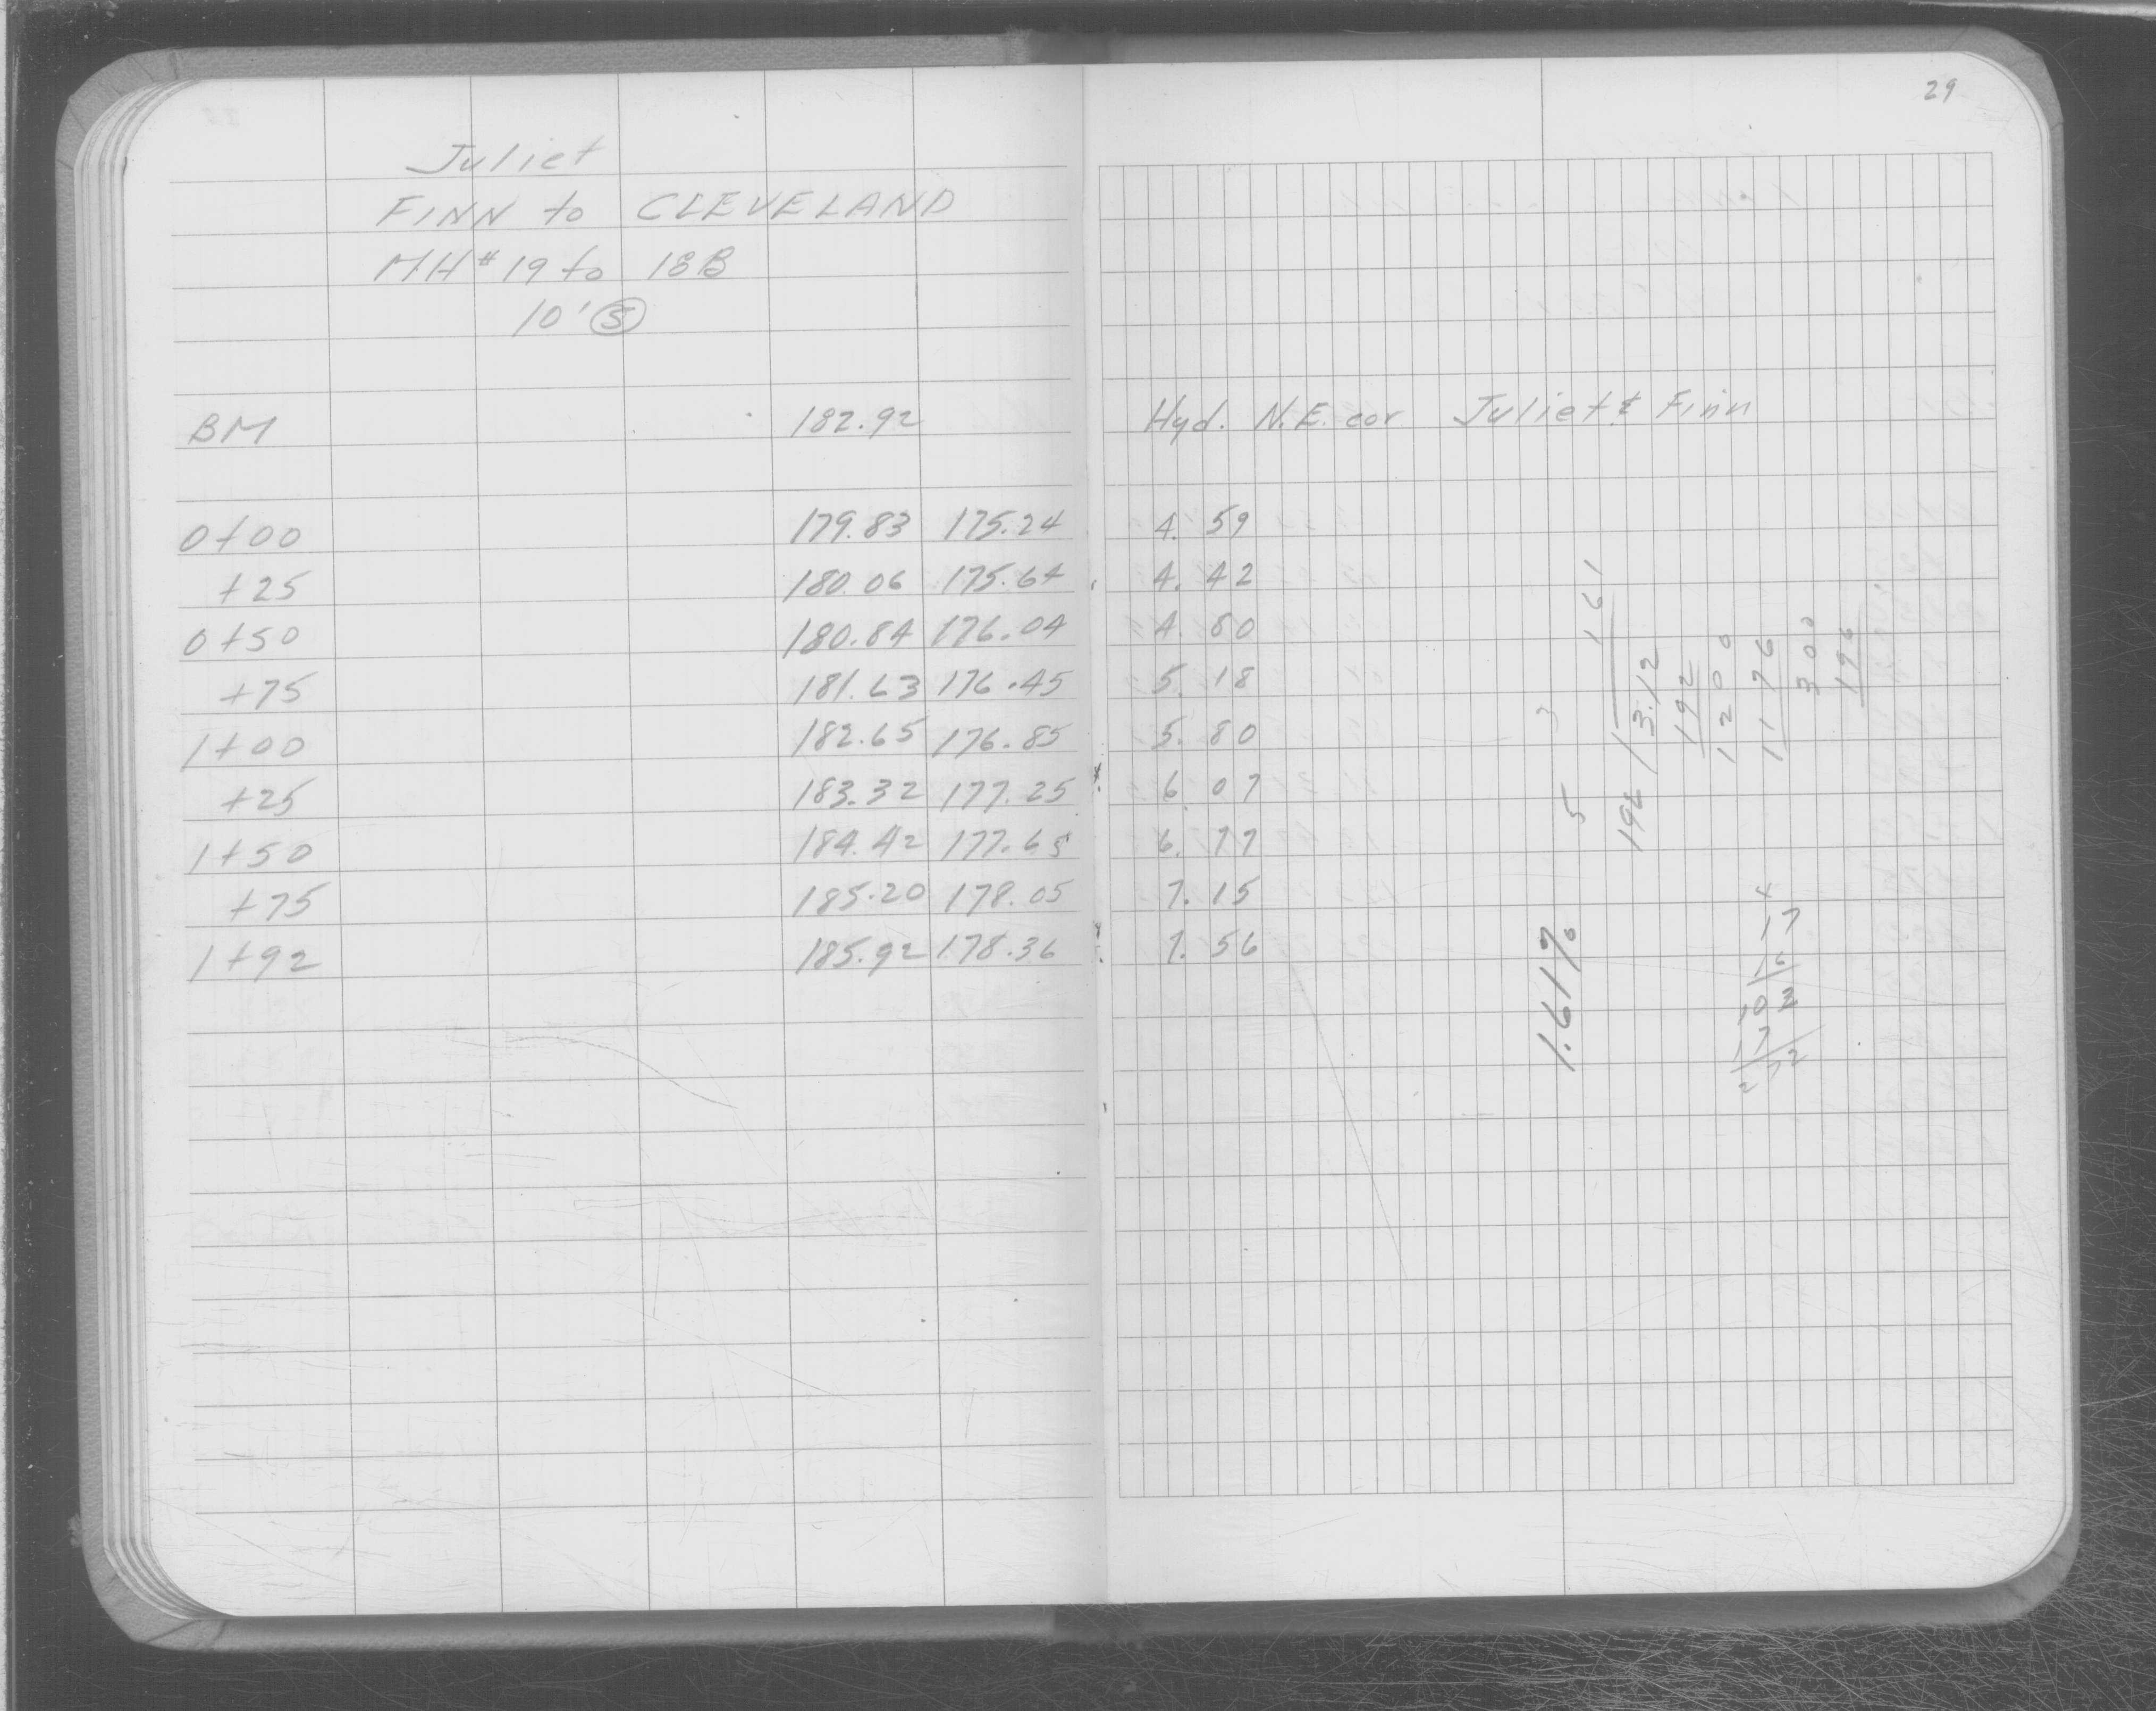 29
Juliet
FINN to CLEVELAND
MH# 19 to 18B
10' Ⓢ
BM 182.92 Hyd. N.E. cor. Juliet & Finn
0+00 179.83 175.24 4.59
+25 180.06 175.64 4.42
0+50 180.84 176.04 4.80
+75 181.63 176.45 5.18
1+00 182.65 176.85 5.80
+25 183.32 177.25 6.07
1+50 184.42 177.65 6.77
+75 185.20 178.05 7.15
1+92 185.92 178.36 7.56
1.61%
5 3
161
196 / 3.12
192
1200
1176
300
196
4
17
16
102
17
272